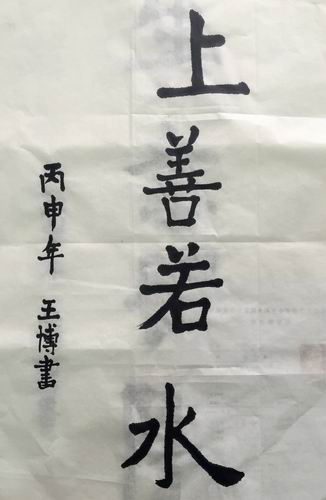 上善若水
丙申年 王博書